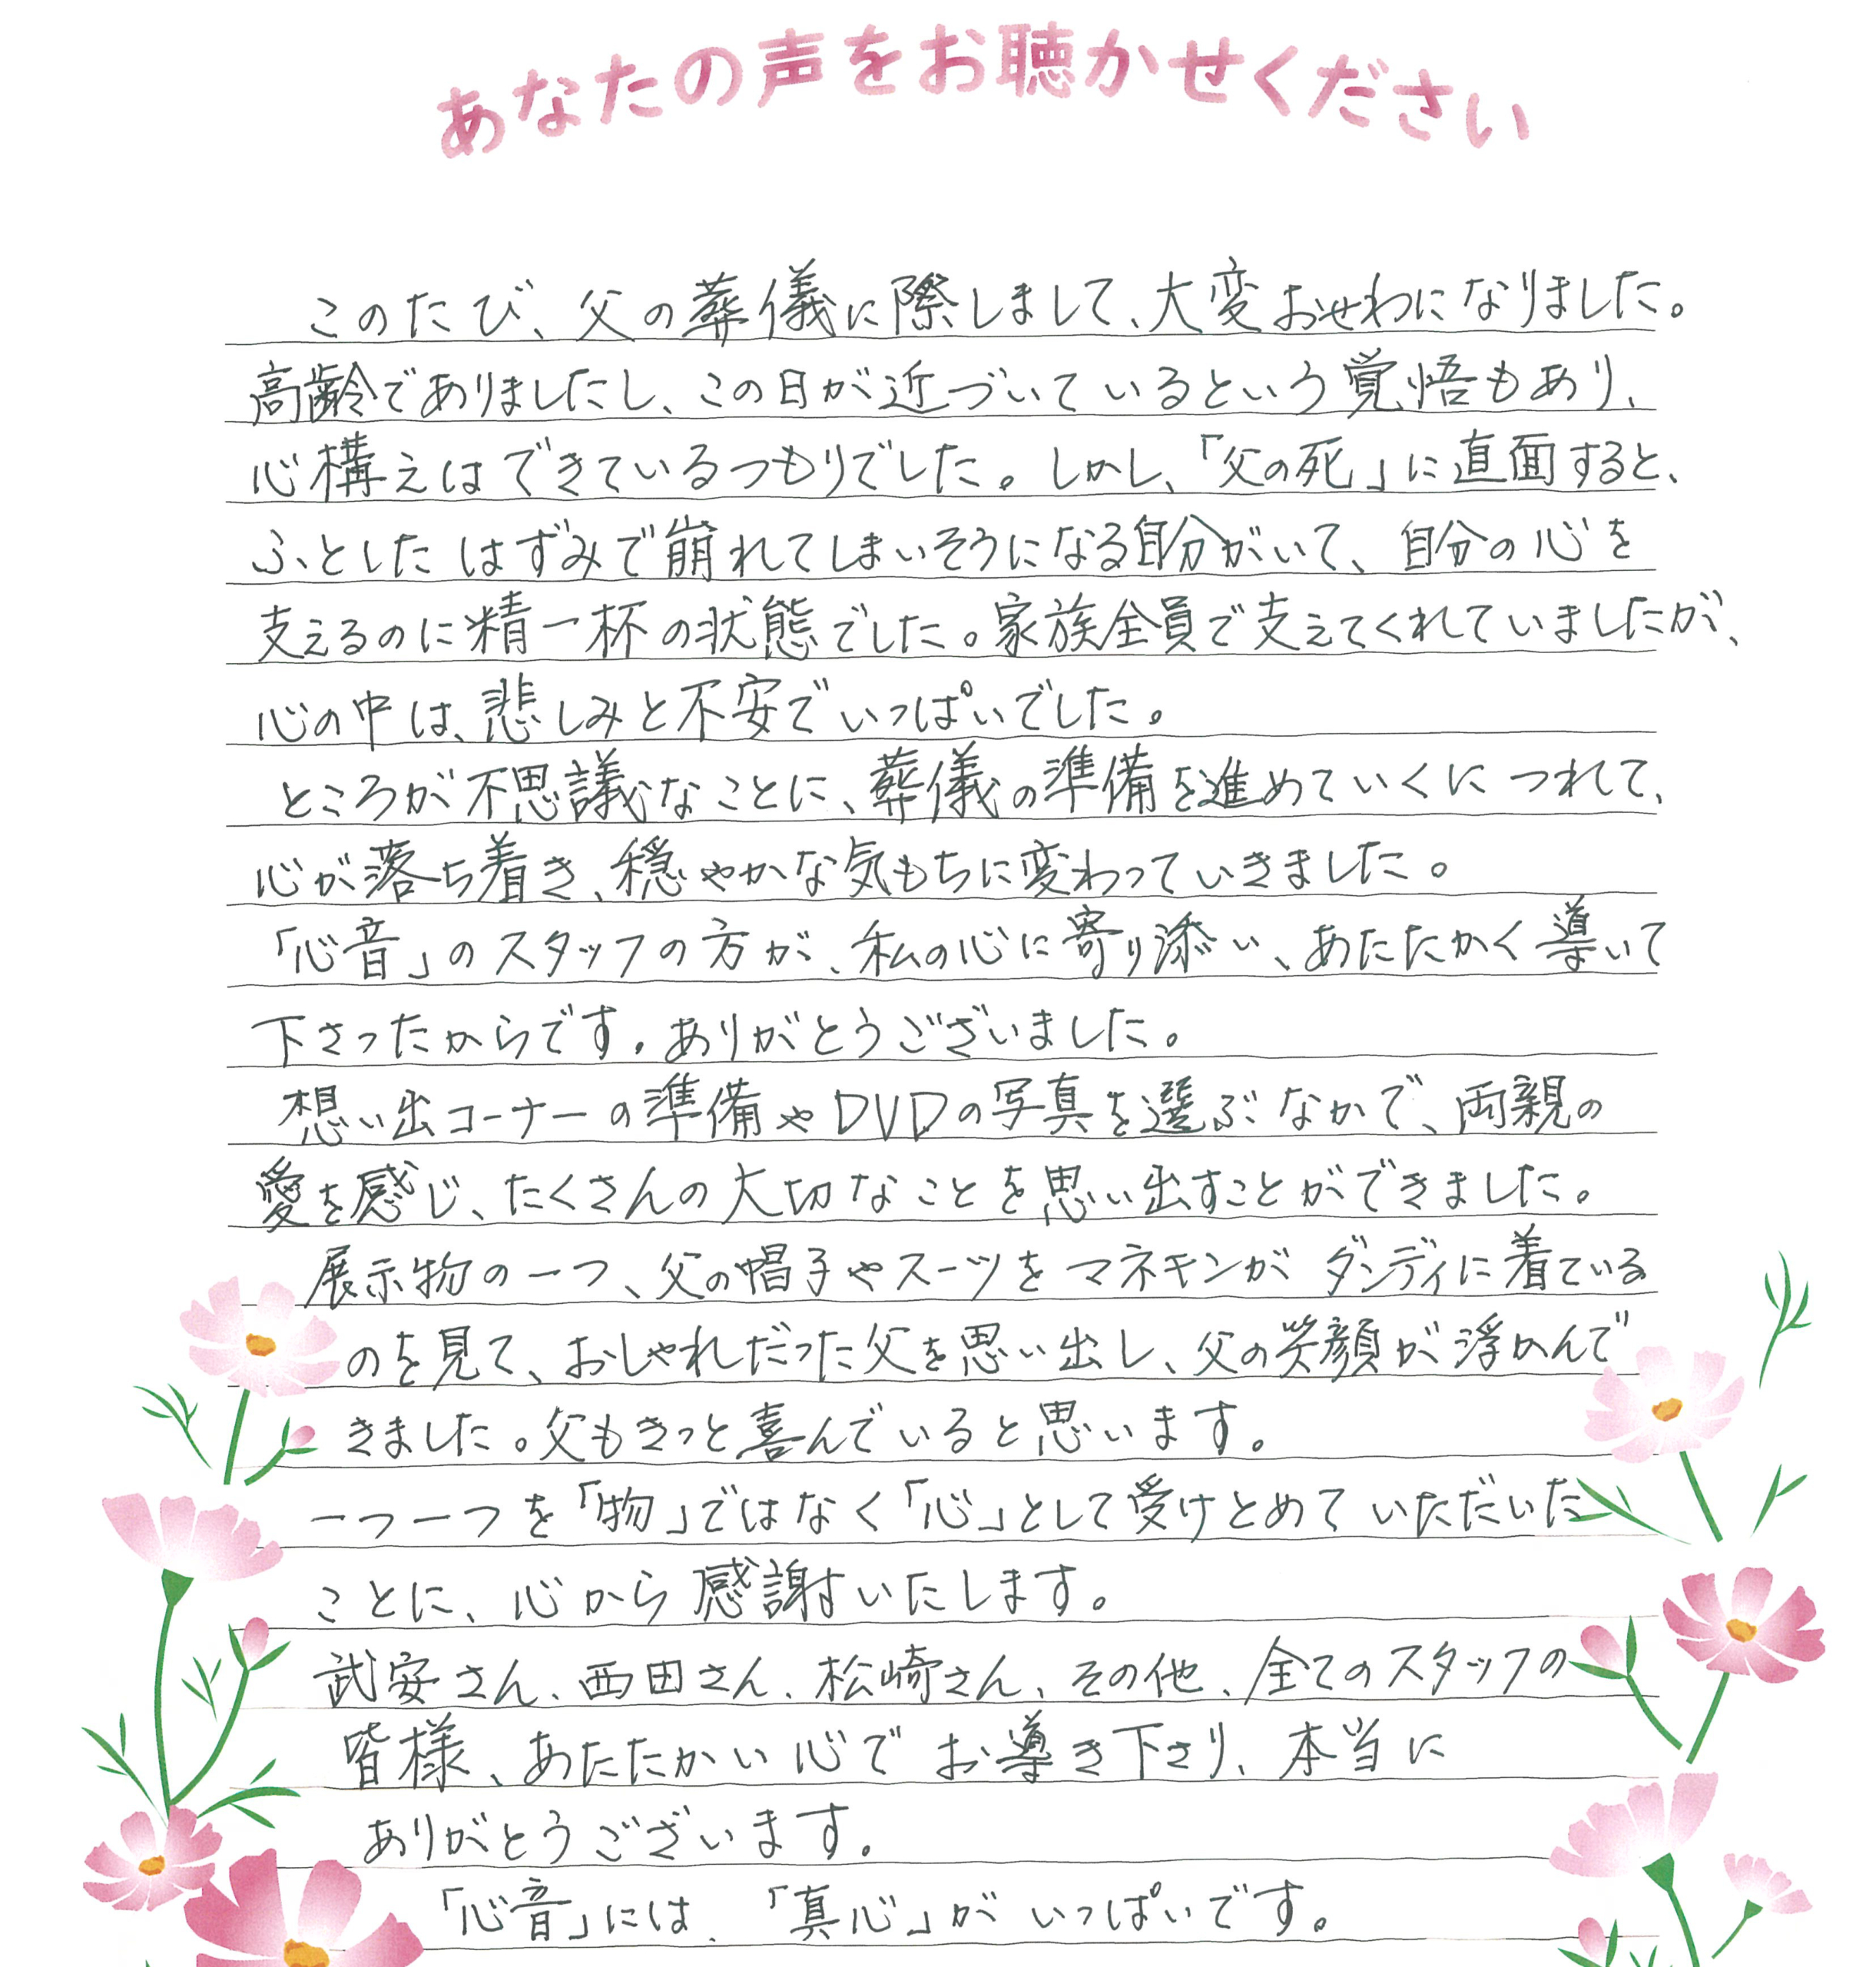 あなたの声をお聴かせください
このたび、父の葬儀に際しまして、大変おせわになりました。
高齢でありましたし、この日が近づいているという覚悟もあり、
心構えはできているつもりでした。しかし、「父の死」に直面すると、
ふとしたはずみで崩れてしまいそうになる自分がいて、自分の心を
支えるのに精一杯の状態でした。家族全員で支えてくれていましたが、
心の中は、悲しみと不安でいっぱいでした。
ところが不思議なことに、葬儀の準備を進めていくにつれて、
心が落ち着き、穏やかな気もちに変わっていきました。
「心音」のスタッフの方が、私の心に寄り添い、あたたかく導いて
下さったからです。ありがとうございました。
想い出コーナーの準備やDVDの写真を選ぶなかで、両親の
愛を感じ、たくさんの大切なことを思い出すことができました。
展示物の一つ、父の帽子やスーツをマネキンがダンディに着ている
のを見て、おしゃれだった父を思い出し、父の笑顔が浮かんで
きました。父もきっと喜んでいると思います。
一つ一つを「物」ではなく「心」として受けとめていただいた
ことに、心から感謝いたします。
武安さん、西田さん、松崎さん、その他、全てのスタッフの
皆様、あたたかい心でお導き下さり、本当に
ありがとうございます。
「心音」には、「真心」がいっぱいです。